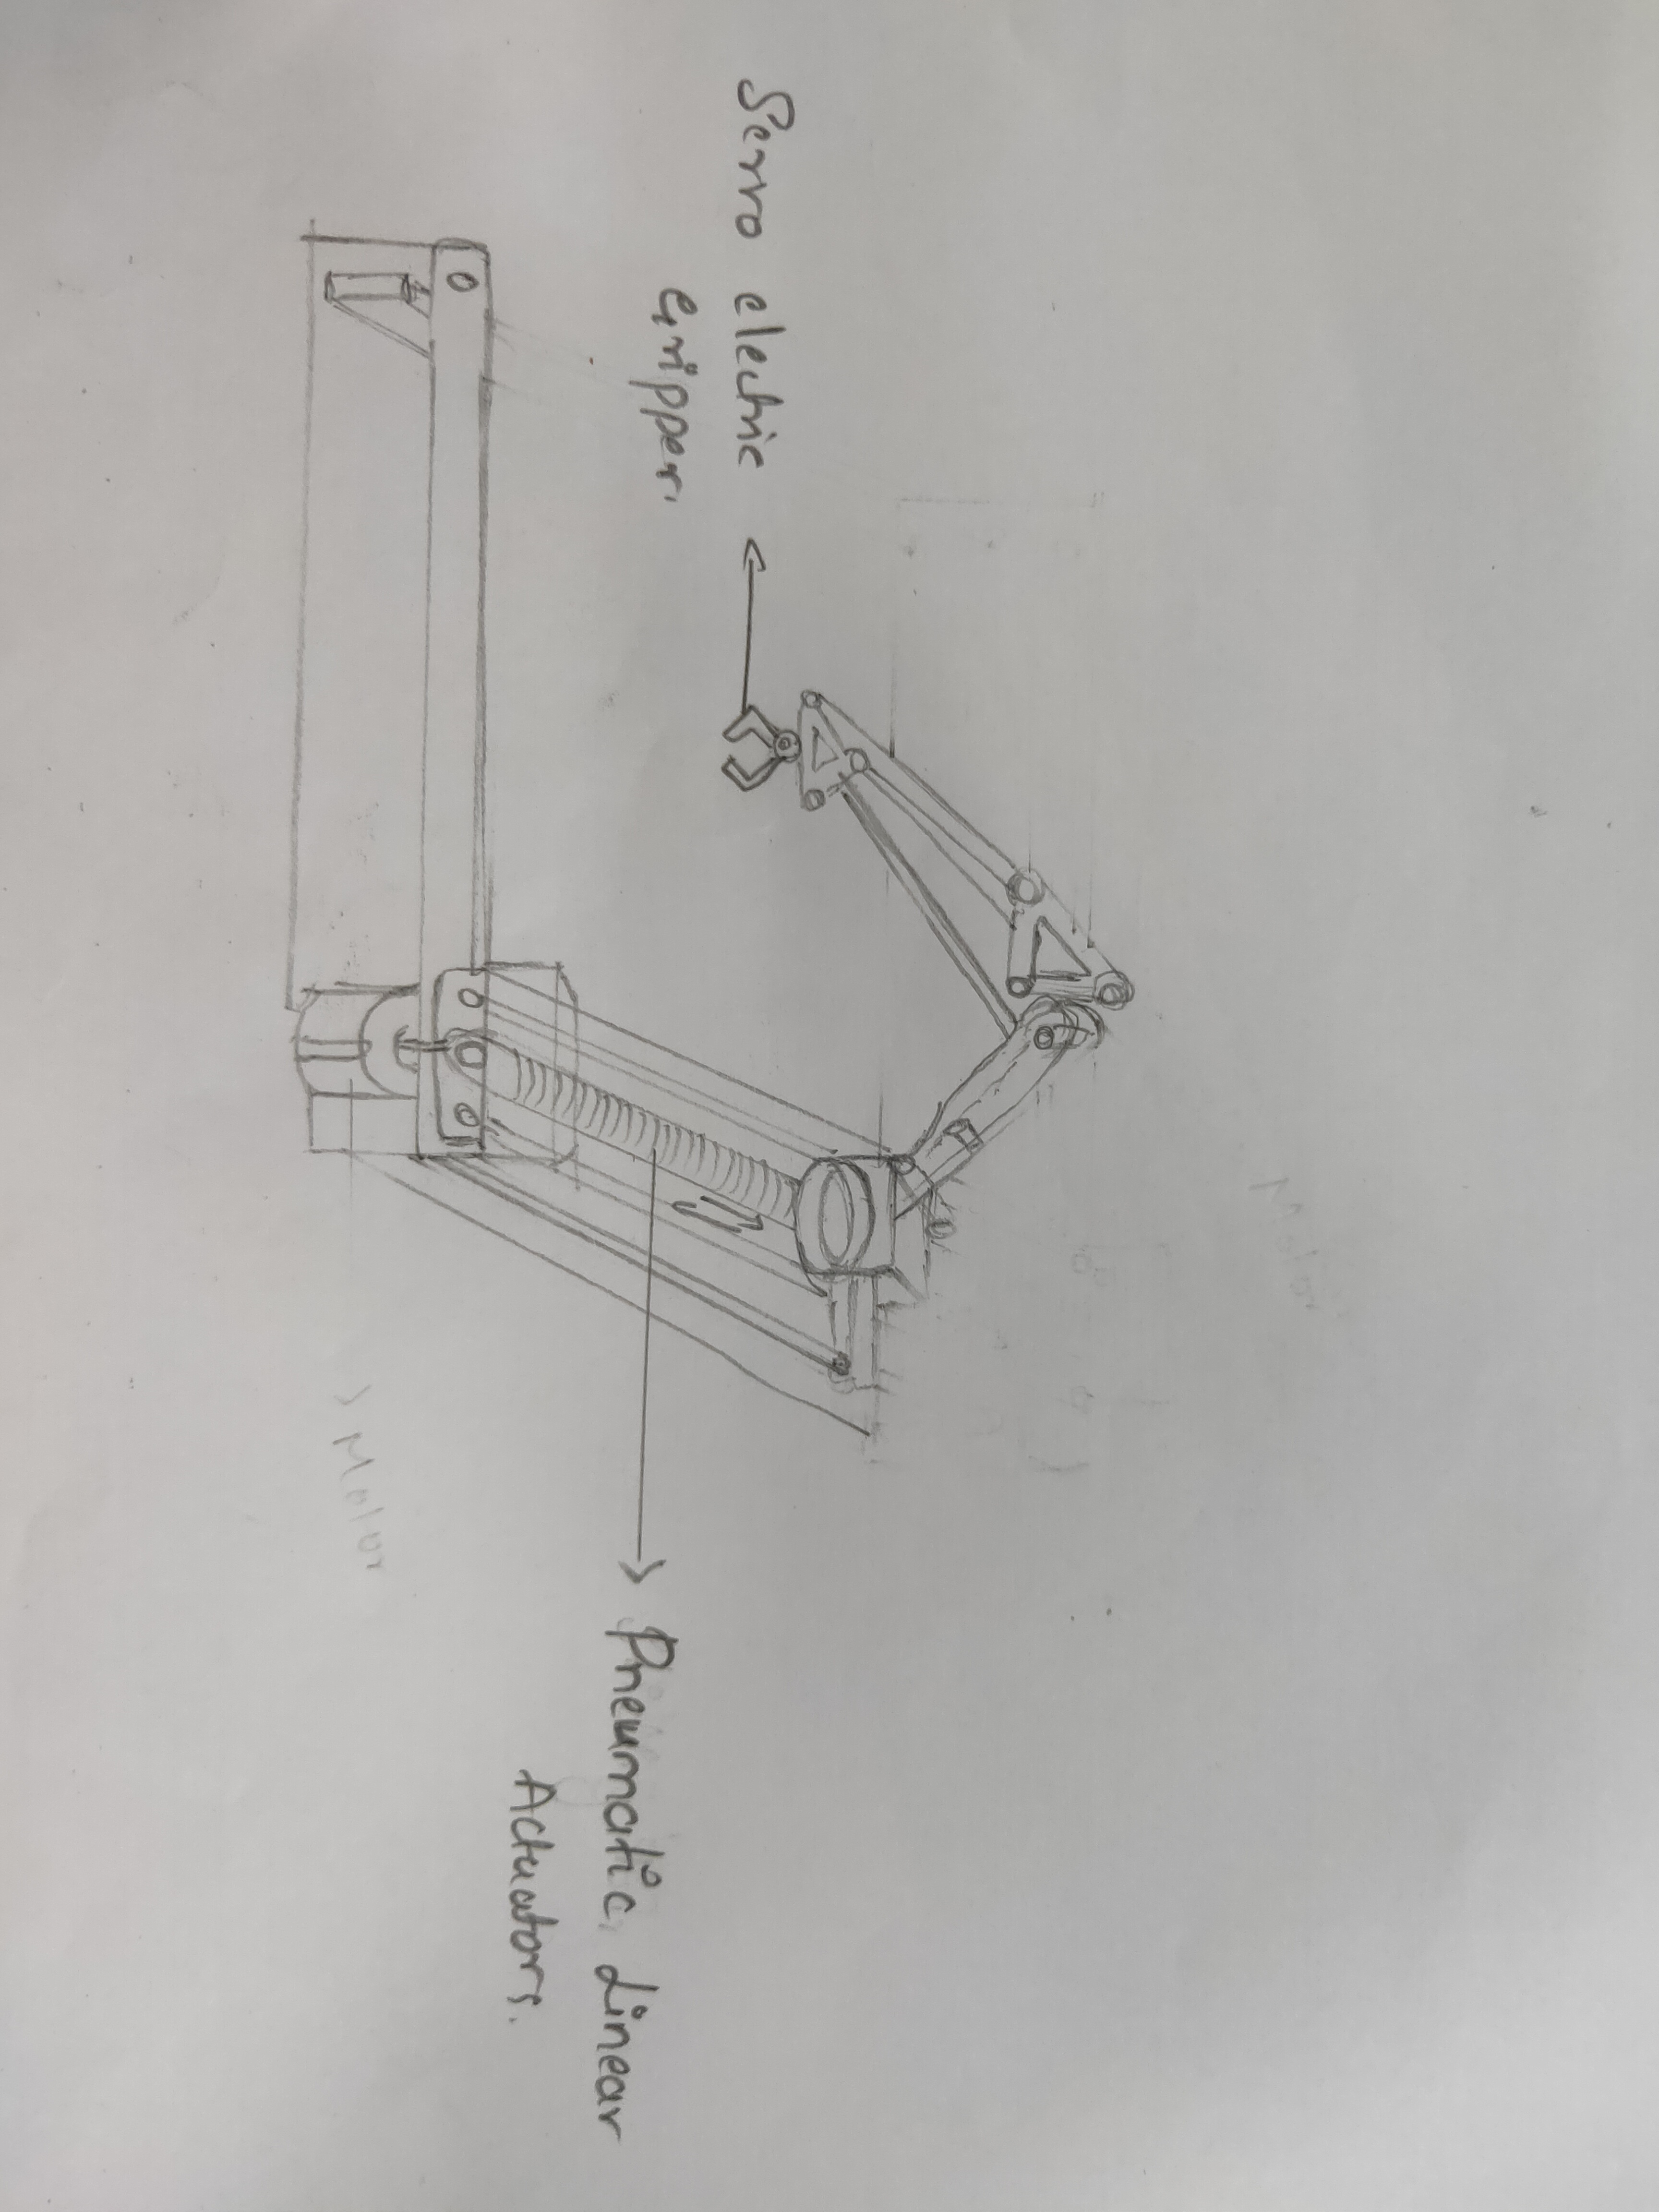 Servo electric
Gripper.
Pneumatic Linear
Actuators.
Motor
Motor